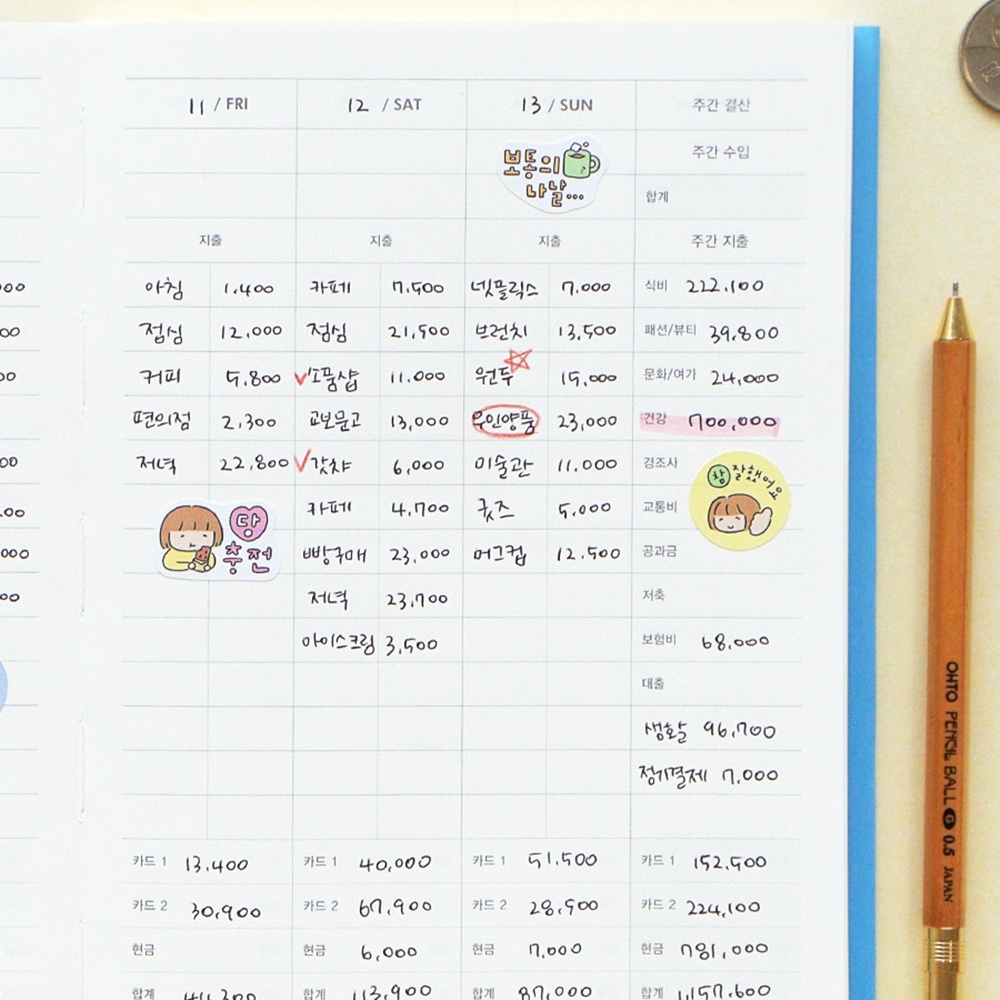 11 / FRI 12 / SAT 13 / SUN 주간 결산
보통의 주간 수입
나날... 합계
지출 지출 지출 주간 지출
00 아침 1,400 카페 7,500 넷플릭스 7,000 식비 222,100
00 점심 12,000 점심 21,500 브런치 13,500 패션/뷰티 39,800
00 커피 5,800 소품샵 11,000 원두 15,000 문화/여가 24,000
편의점 2,300 교보문고 13,000 무인양품 23,000 건강 700,000
00 저녁 22,800 갓챠 6,000 미술관 11,000 경조사
참 잘했어요
00 당 충전 카페 4,700 굿즈 5,000 교통비
000 빵구매 23,000 머그컵 12,500 공과금
00 저녁 23,700 저축
아이스크림 3,500 보험비 68,000
대출
생활 96,700
정기결제 7,000
카드 1 13,400 카드 1 40,000 카드 1 51,500 카드 1 152,500
카드 2 30,900 카드 2 67,900 카드 2 28,500 카드 2 224,100
현금 현금 6,000 현금 7,000 현금 781,000
합계 44,300 합계 113,900 합계 87,000 합계 1,157,600
OHTO PENCIL BALL G 0.5 JAPAN